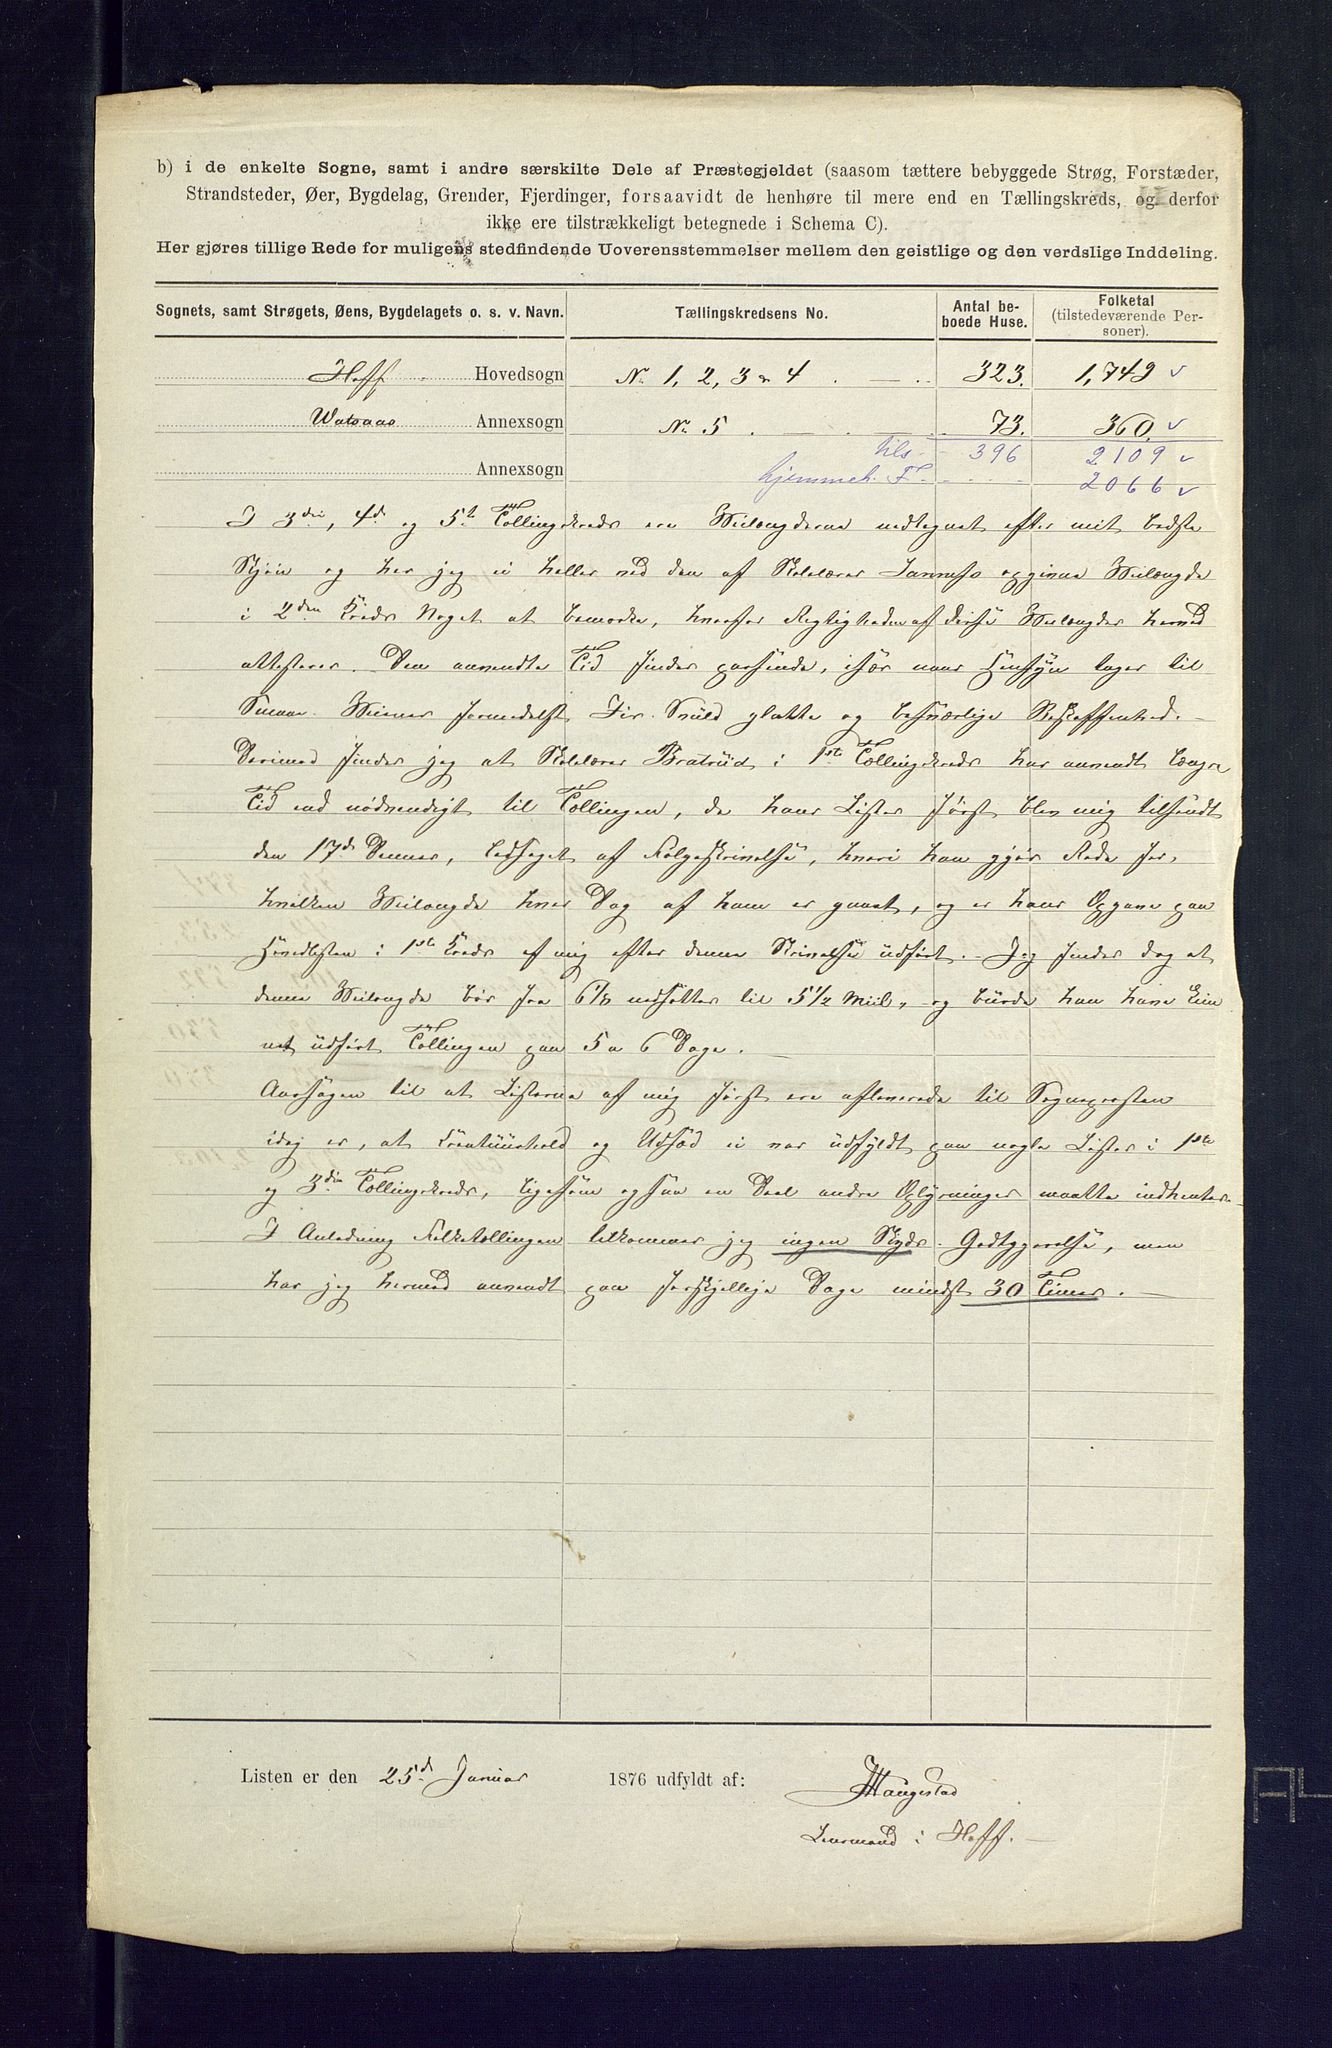 b) i de enkelte Sogne, samt i andre særskilte Dele af Præstegjeldet (saasom tættere bebyggede Strøg, Forstæder,
Strandsteder, Øer, Bygdelag, Grender, Fjerdinger, forsaavidt de henhøre til mere end en Tællingskreds, og derfor
ikke ere tilstrækkeligt betegnede i Schema C).
Her gjøres tillige Rede for muligens stedfindende Uoverensstemmelser mellem den geistlige og den verdslige Inddeling.
Sognets, samt Strøgets, Øens, Bygdelagets o. s. v. Navn. Tællingskredsens No. Antal beboede Huse. Folketal (tilstedeværende Personer).
Hoff Hovedsogn No. 1, 2, 3 & 4 323. 1,749
Annexsogn No. 5 73. 360.
tils. 396 2109
Annexsogn hjemmeh. F. 2066
I 3die, 4de og 5te Tællingskreds ere Veilængderne nedtegnet efter mit bedste
Skjøn og har jeg ei heller ved den af Skolelærer opgivne Veilængde
i 2den Kreds Noget at bemærke, hvorfor Rigtigheden af disse Veilængder herved
attesteres. Den anvendte Tid findes passende, især naar Hensyn tages til
Veienes formedelst glatte og besværlige Beskaffenhed.
Derimod finder jeg at Skolelærer Bratrud i 1ste Tællingskreds har anvendt længre
Tid end nødvendigt til Tællingen, da hans Lister først blev mig tilsendt
den 17de Dennes, ledsaget af Følgeskrivelse, hvori han gjør Rede for,
hvilken Veilængde hver Dag af ham er gaaet, og er hans Opgave paa
Hovedlisten i 1ste Kreds af mig efter denne Skrivelse udført. Jeg finder dog at
denne Veilængde bør fra 6 1/8 nedsættes til 5 1/2 Miil, og burde han have
udført Tællingen paa 5 a 6 Dage.
Aarsagen til at Listerne af mig først ere afleverede til Sognepræsten
idag er, at Kreaturhold og Udsæd ei var udfyldt paa nogle Lister i 1ste
og 3die Tællingskreds, ligesom ogsaa en Deel andre Oplysninger maatte indhentes.
I Anledning Folketællingen tilkommer jeg ingen Skyds-Godtgjørelse, men
har jeg hermed anvendt paa forskjellige Dage mindst 30 Timer.
Listen er den 25de Januar 1876 udfyldt af: Haugestad
Lensmand i Hoff.